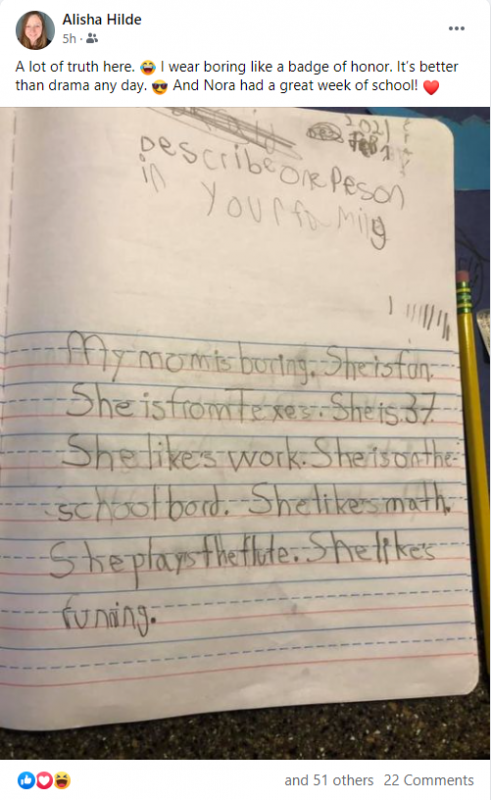 Alisha Hilde
5h
A lot of truth here. 😂 I wear boring like a badge of honor. It's better
than drama any day. 😎 And Nora had a great week of school! ❤️
2021
Feb 1
Describe one Peson
in
your family
My mom is boring. She is fun.
She is from Texes. She is 37.
She likes work. She is on the
school bord. She likes math.
She plays the flute. She likes
runing.
and 51 others 22 Comments